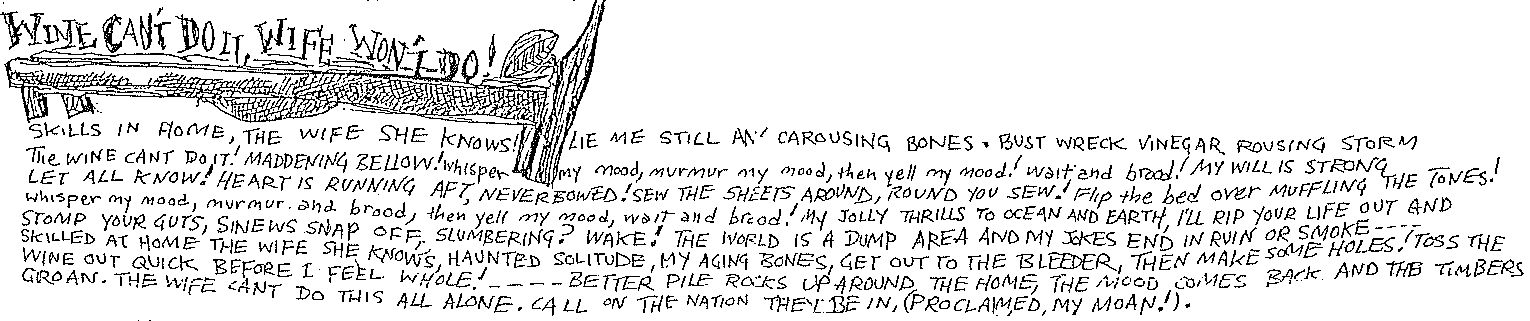 WINE CAN'T DO IT, WIFE WON'T DO!
SKILLS IN HOME, THE WIFE SHE KNOWS! LIE ME STILL AN' CAROUSING BONES. BUST WRECK VINEGAR ROUSING STORM
The WINE CANT DO IT! MADDENING BELLOW! whisper my mood, murmur my mood, then yell my mood! wait and brood! MY WILL IS STRONG
LET ALL KNOW! HEART IS RUNNING AFT, NEVER BOWED! SEW THE SHEETS AROUND, 'ROUND YOU SEW! Flip the bed over MUFFLING THE TONES!
whisper my mood, murmur and brood, then yell my mood, wait and brood! MY JOLLY THRILLS TO OCEAN AND EARTH, I'LL RIP YOUR LIFE OUT AND
STOMP YOUR GUTS, SINEWS SNAP OFF, SLUMBERING? WAKE! THE WORLD IS A DUMP AREA AND MY JOKES END IN RUIN OR SMOKE----
SKILLED AT HOME THE WIFE SHE KNOWS, HAUNTED SOLITUDE, MY AGING BONES, GET OUT TO THE BLEEDER, THEN MAKE SOME HOLES! TOSS THE
WINE OUT QUICK BEFORE I FEEL WHOLE!-----BETTER PILE ROCKS UP AROUND THE HOME, THE MOOD COMES BACK AND THE TIMBERS
GROAN. THE WIFE CANT DO THIS ALL ALONE. CALL ON THE NATION THEY'LL BE IN, (PROCLAIMED, MY MOAN!).